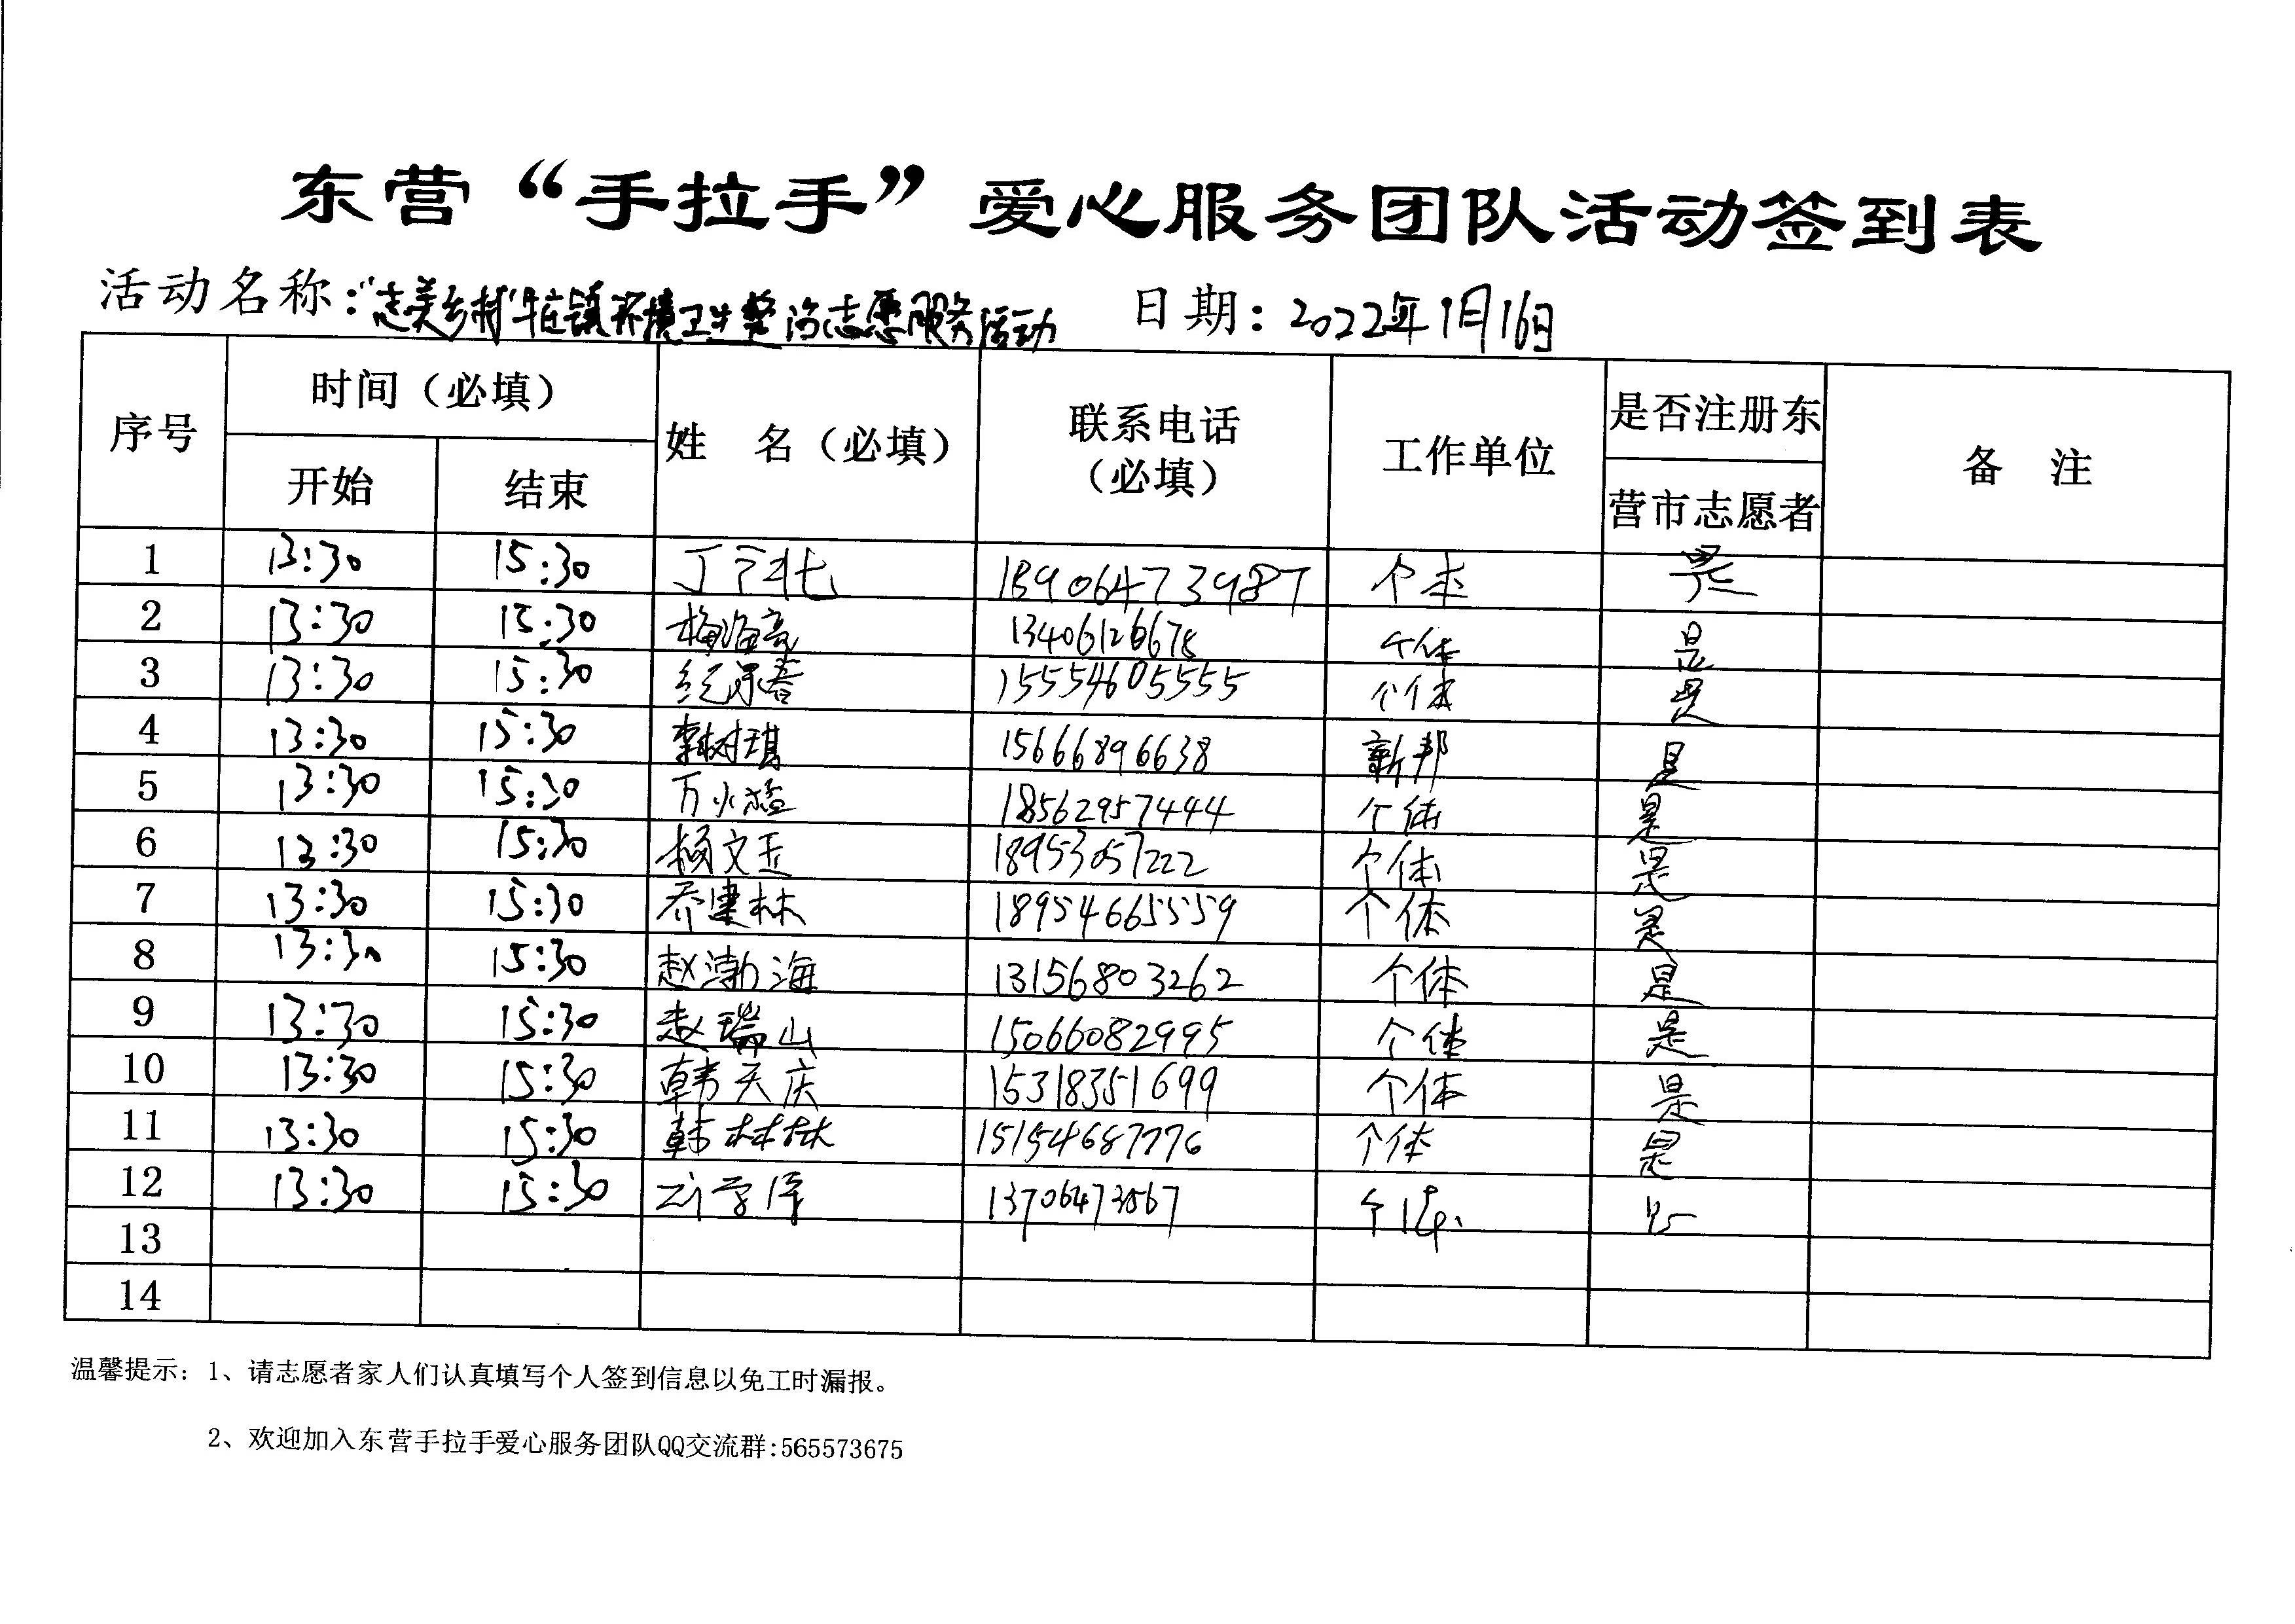 东营“手拉手”爱心服务团队活动签到表
活动名称：“志美乡村”牛庄镇环境卫生整治志愿服务活动 日期：2022年1月16日
序号 时间（必填） 姓 名（必填） 联系电话（必填） 工作单位 是否注册东营市志愿者 备 注
开始 结束
1 13:30 15:30 丁 18906473987 个体 是
2 13:30 15:30 梅海亮 1340612667 个体 是
3 13:30 15:30 纪 春 15554605555 个体 是
4 13:30 15:30 李树琪 15666896638 新邦 是
5 13:30 15:30 万小 18562957444 个体 是
6 13:30 15:30 杨文玉 18953057222 个体 是
7 13:30 15:30 乔建林 18954665559 个体 是
8 13:30 15:30 赵渤海 13156803262 个体 是
9 13:30 15:30 赵瑞山 15066082995 个体 是
10 13:30 15:30 韩天庆 15318351699 个体 是
11 13:30 15:30 韩林林 15154687776 个体 是
12 13:30 15:30 1370647 个体
13
14
温馨提示：1、请志愿者家人们认真填写个人签到信息以免工时漏报。
2、欢迎加入东营手拉手爱心服务团队QQ交流群:565573675